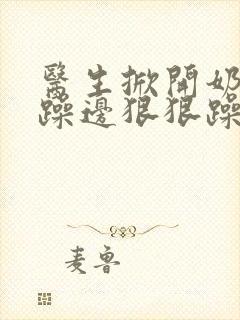 醫生掀開奶
躁邊狠狠躁
麦鲁